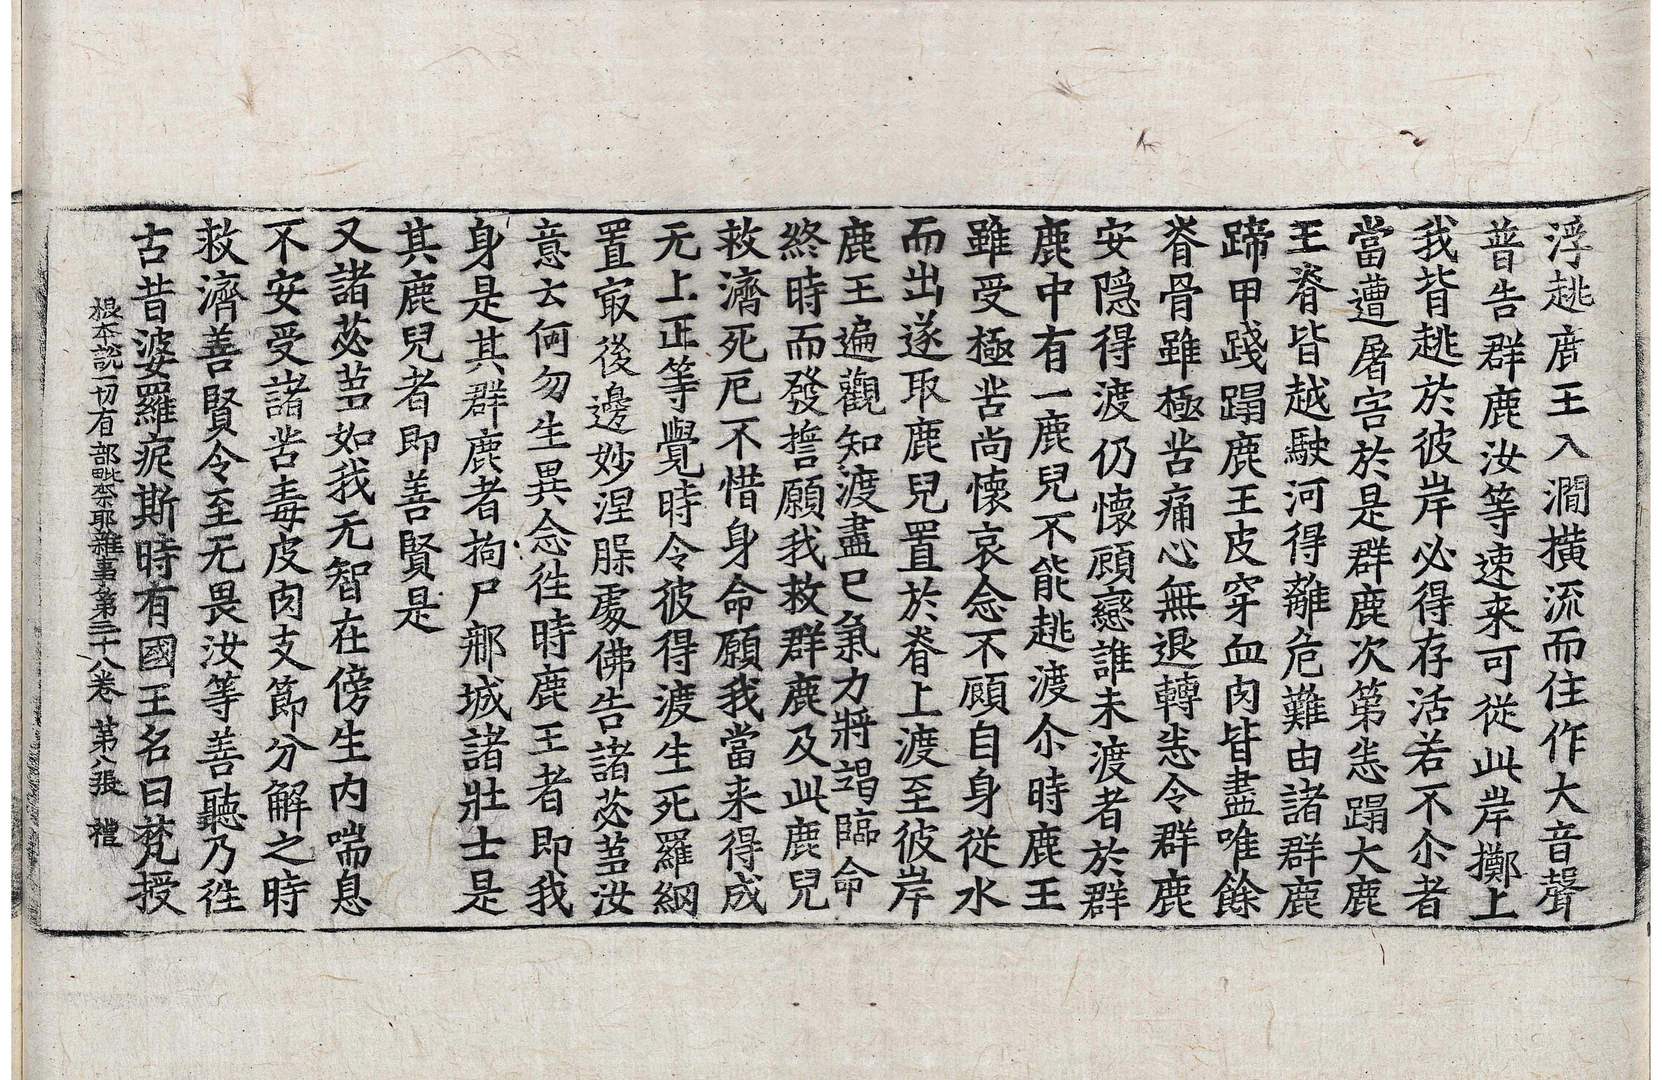 浮趒鹿王入澗撗流而住作大音聲
普告群鹿汝等速来可從此岸擲上
我背趒於彼岸必得存活若不尒者
當遭屠害於是群鹿次第恙蹋大鹿
王脊皆越駛河得離危難由諸群鹿
蹄甲踐蹋鹿王皮穿血肉皆盡唯餘
脊骨雖極苦痛心無退轉恙令群鹿
安隱得渡仍懷顧戀誰未渡者於群
鹿中有一鹿兒不能趒渡尒時鹿王
雖受極苦尚懷哀念不願自身從水
而出遂取鹿兒置於脊上渡至彼岸
鹿王遍觀知渡盡已氣力將竭臨命
終時而發誓願我救群鹿及此鹿兒
救濟死厄不惜身命願我當来得成
无上正等覺時令彼得渡生死羅網
置㝡後邊妙涅槃處佛告諸苾芻汝
意云何勿生異念徃時鹿王者即我
身是其群鹿者拘尸那城諸壯士是
其鹿兒者即善賢是
又諸苾芻如我无智在傍生内喘息
不安受諸苦毒皮肉支節分解之時
救濟善賢令至无畏汝等善聽乃徃
古昔婆羅痆斯時有國王名曰梵授
根本說一切有部毗奈耶雜事第三十八卷 第八張 禮